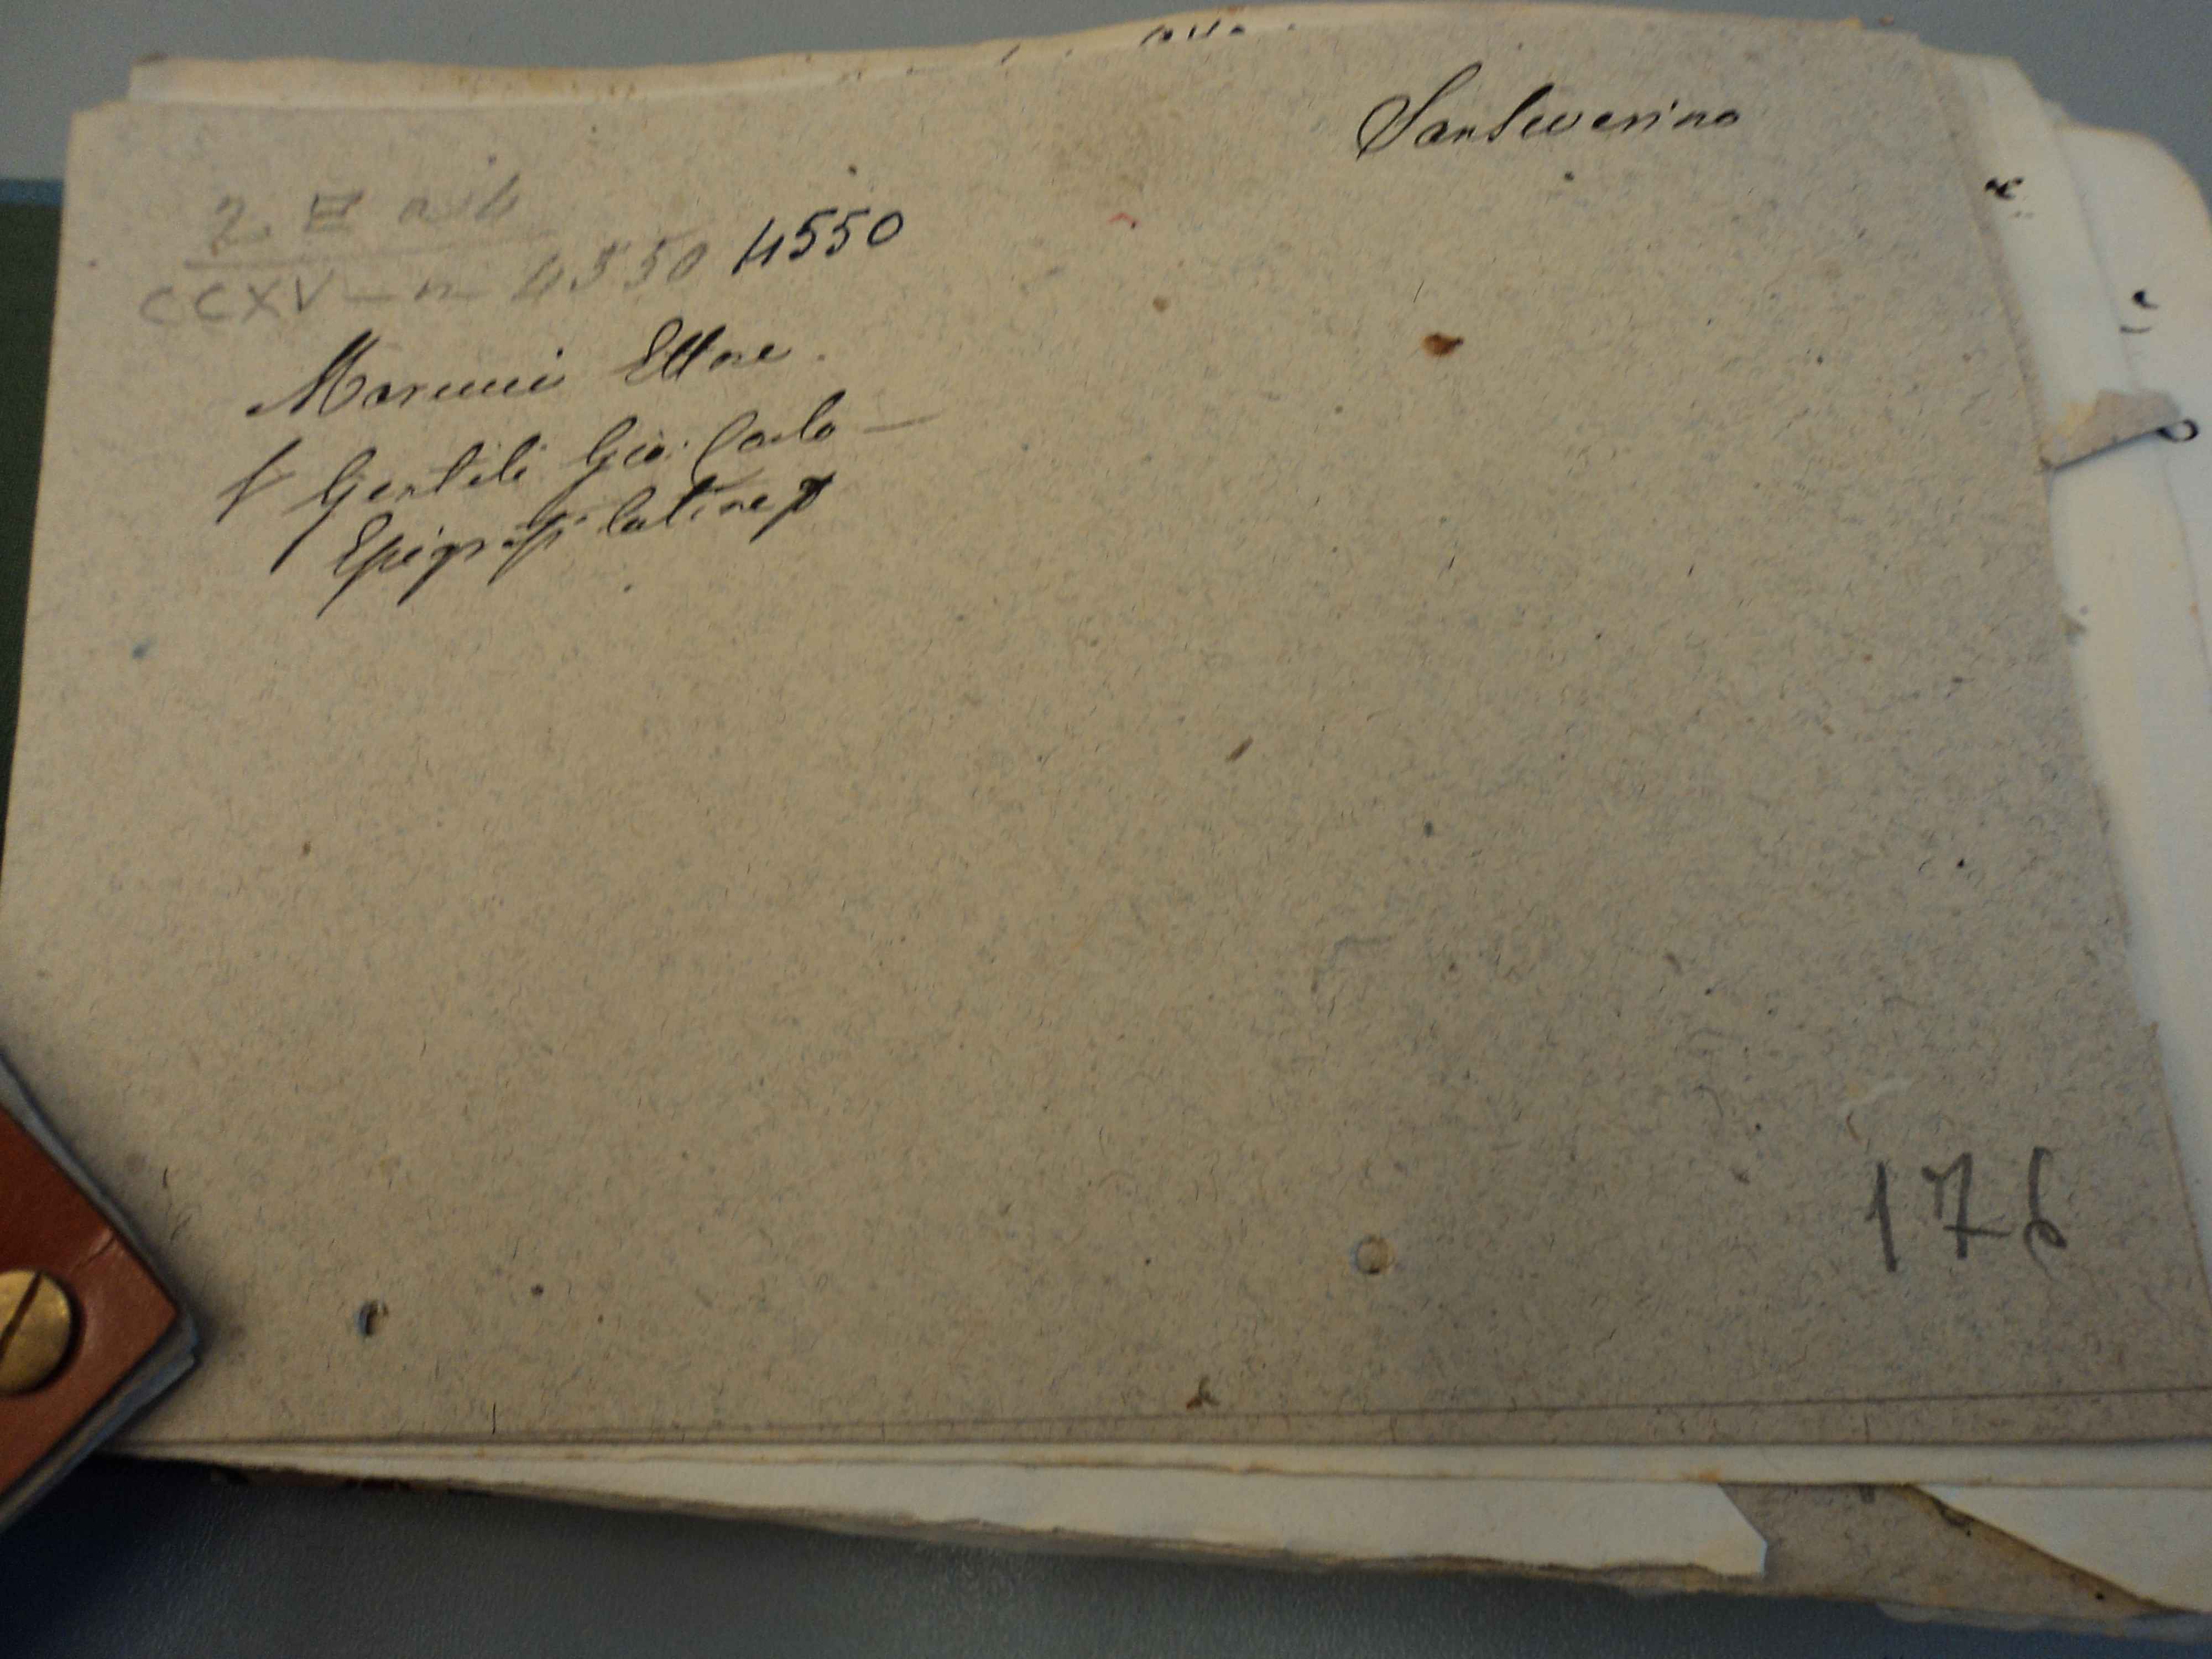 SanSeverino
2 E a.b
CCXV - n 4550 4550
Marcucci Ettore.
Gentili Gio: Carlo —
Epigrafi latine
176